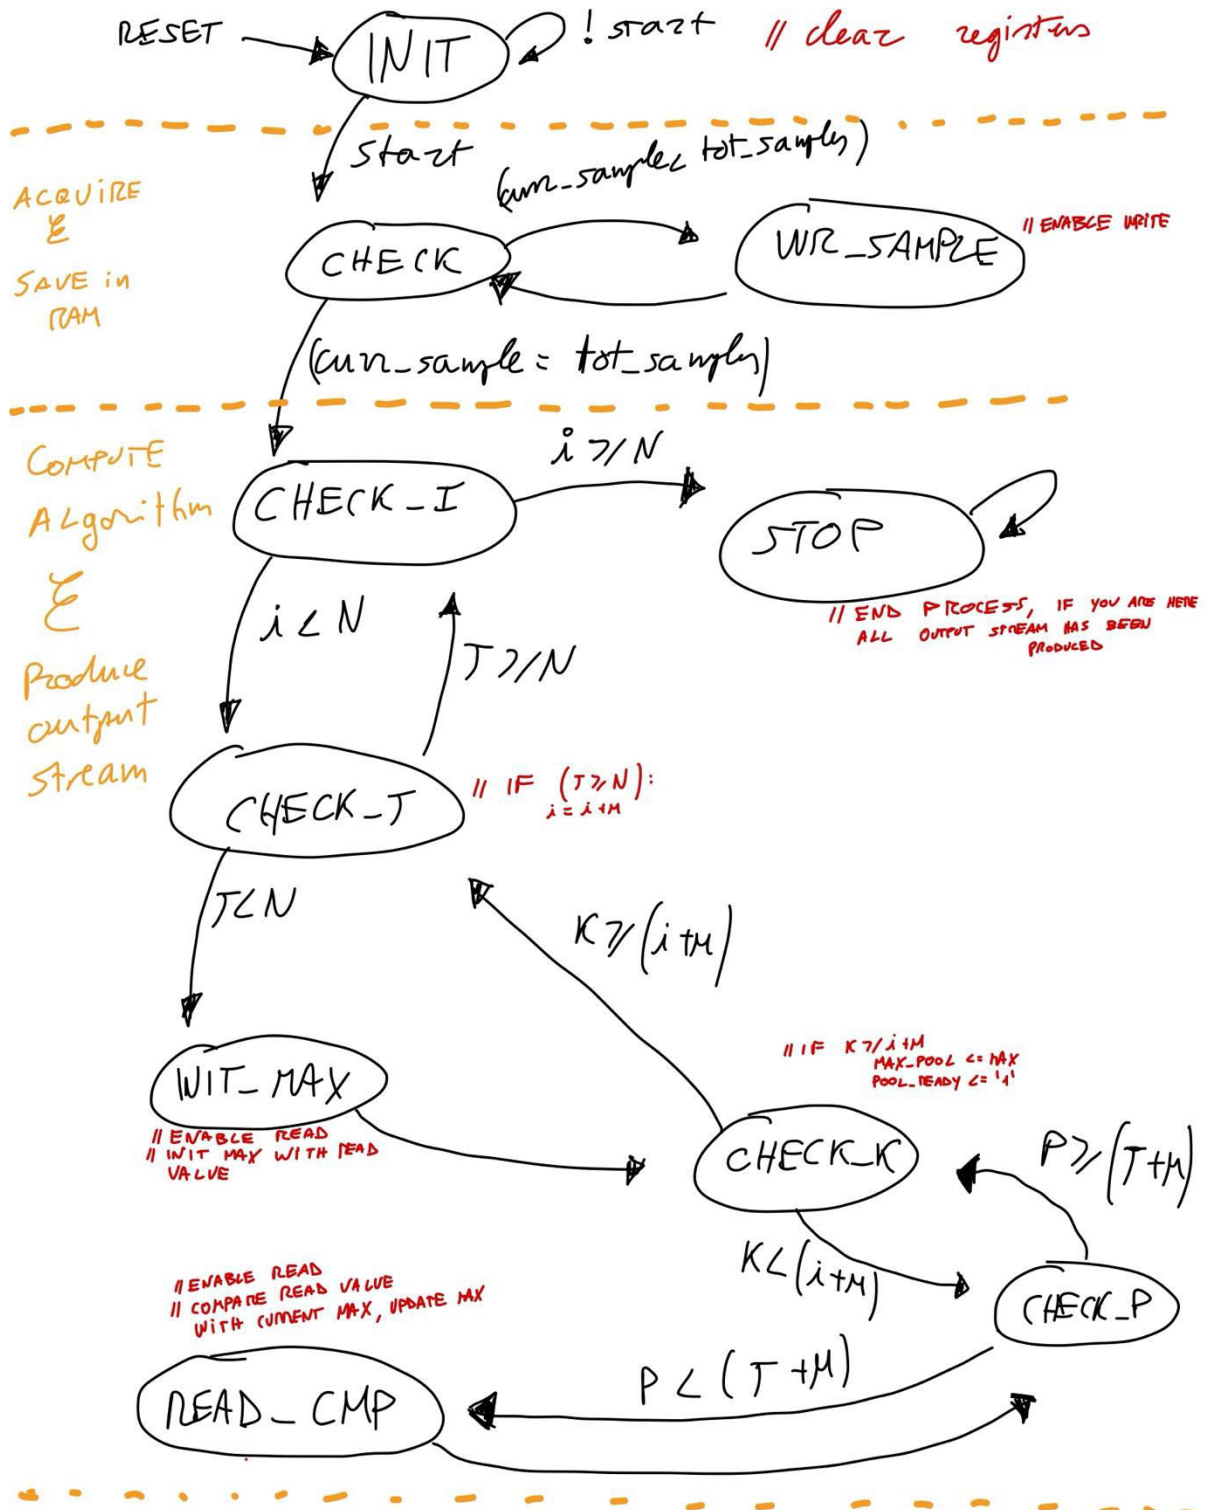 RESET
INIT
! start
// clear registers
start
ACQUIRE
&
SAVE in
RAM
(curr_sample < tot_samples)
CHECK
WR_SAMPLE
// ENABLE WRITE
(curr_sample = tot_samples)
COMPUTE
Algorithm
&
Produce
output
stream
CHECK_I
i ⩾ N
STOP
// END PROCESS, IF YOU ARE HERE
ALL OUTPUT STREAM HAS BEEN
PRODUCED
i < N
J ⩾ N
CHECK_J
// IF (J ⩾ N):
i = i+M
J < N
K ⩾ (i+M)
INIT_MAX
// ENABLE READ
// INIT MAX WITH READ
VALUE
// IF K ⩾ i+M
MAX_POOL <= MAX
POOL_READY <= '1'
CHECK_K
P ⩾ (J+M)
K < (i+M)
CHECK_P
// ENABLE READ
// COMPARE READ VALUE
WITH CURRENT MAX, UPDATE MAX
P < (J+M)
READ_CMP